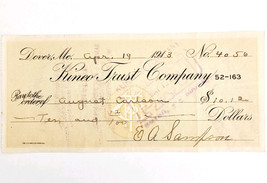 Dover, Me. Apr. 19 1913 No. 4050
Kineo Trust Company 52-163
Pay to the order of August Carlson $10.12
Ten and Dollars
E A Sampson